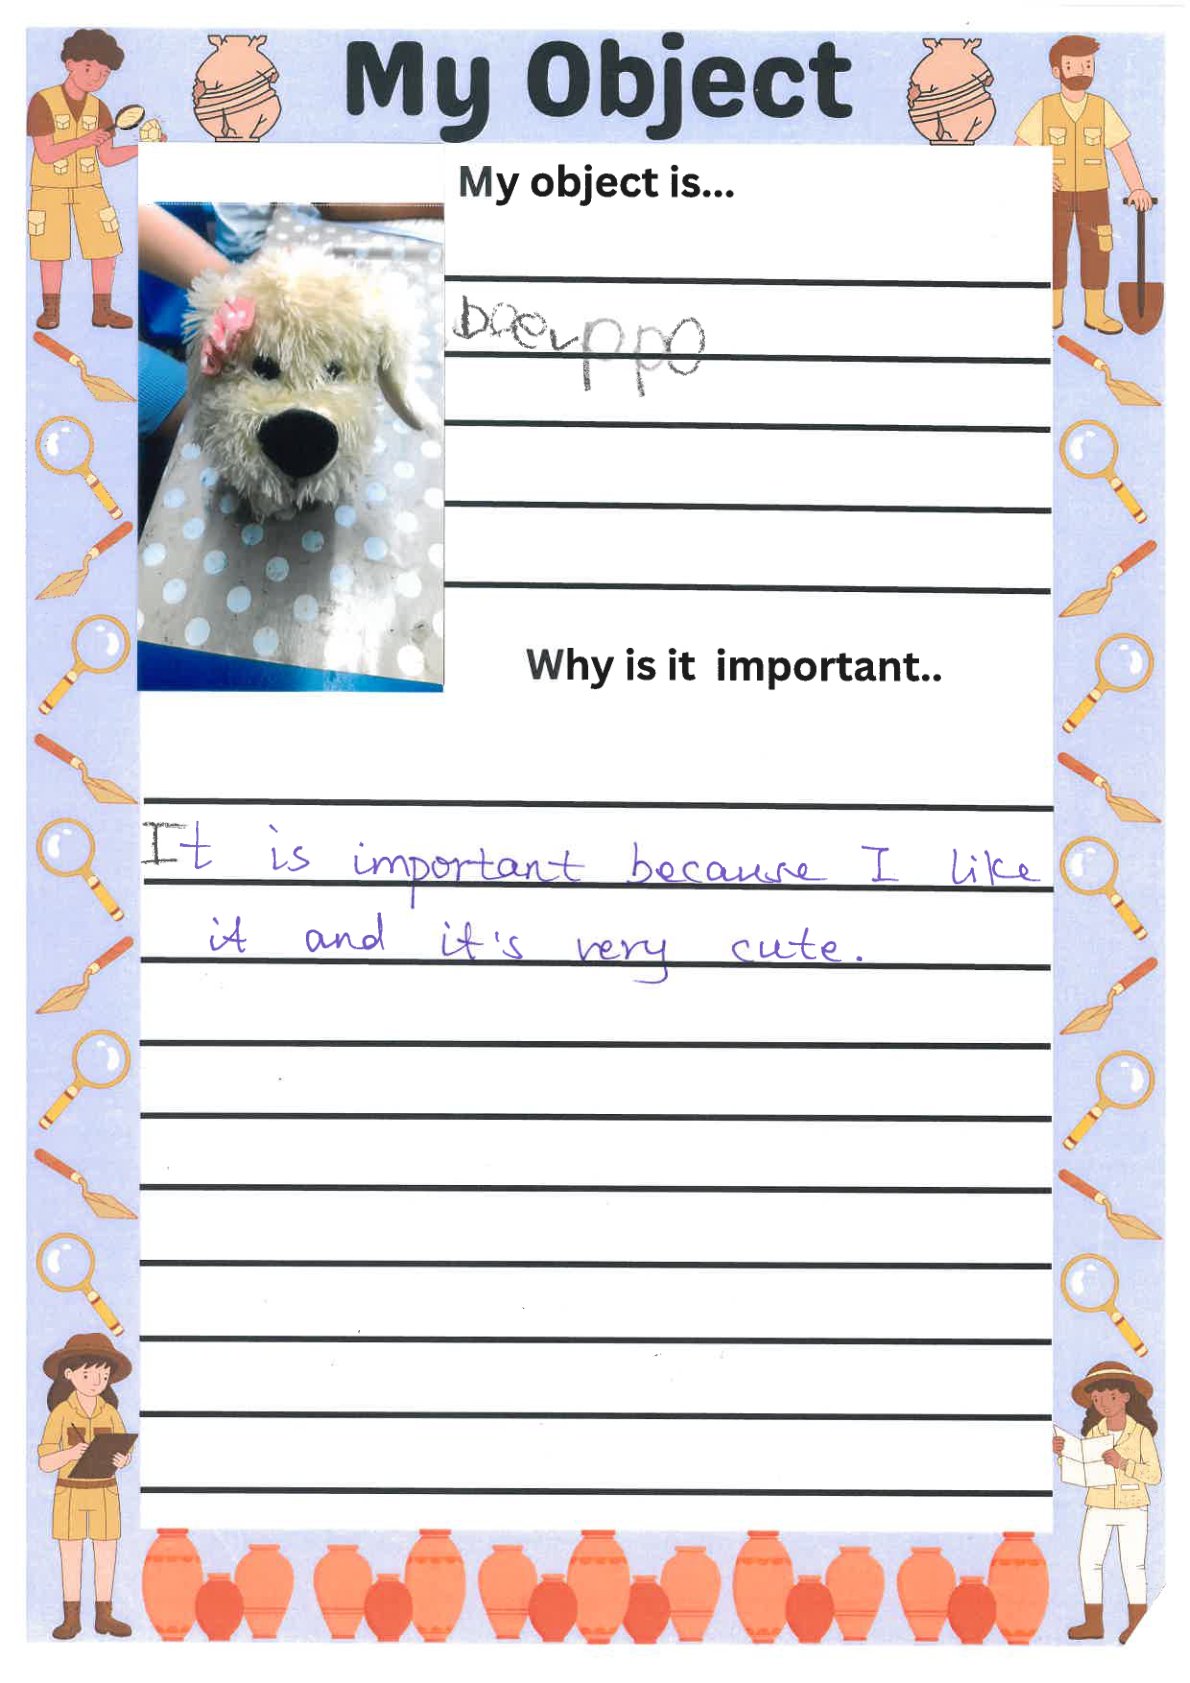 My Object
My object is...
Why is it important..
It is important because I like
it and it's very cute.